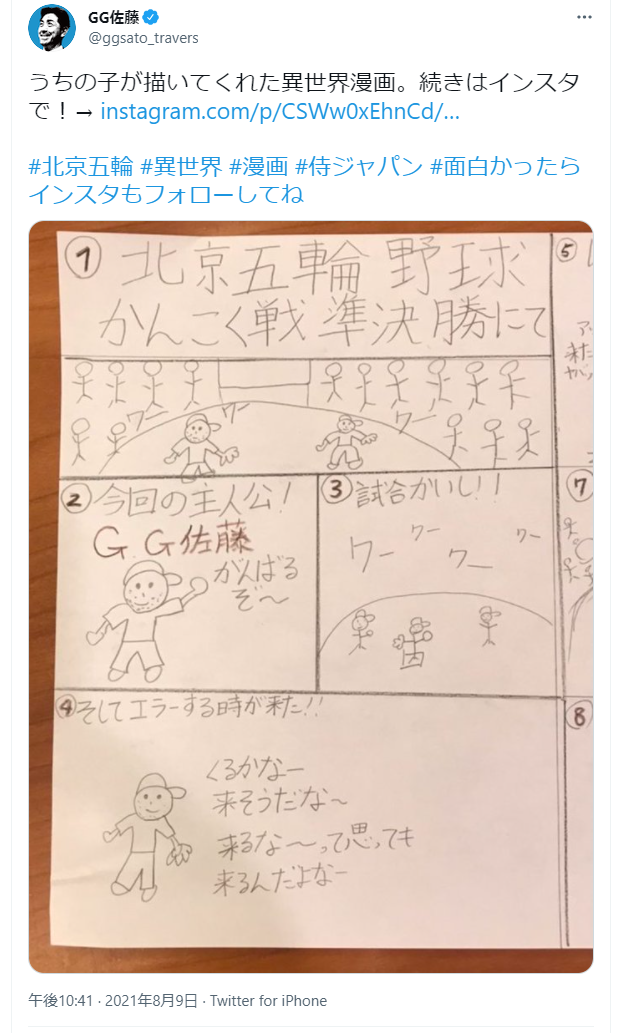 GG佐藤
@ggsato_travers
うちの子が描いてくれた異世界漫画。続きはインスタ
で！→ instagram.com/p/CSWw0xEhnCd/...
#北京五輪 #異世界 #漫画 #侍ジャパン #面白かったら
インスタもフォローしてね
① 北京五輪 野球
かんこく戦 準決勝にて
ワー ワー ワー
② 今回の主人公!
G.G佐藤
がんばる
ぞ〜
③ 試合かいし!!
ワー ワー ワー ワー
④ そしてエラーする時が来た!!
くるかなー
来そうだな〜
来るな〜って思っても
来るんだよなー
⑤
来た
が
⑦
⑧
午後10:41 · 2021年8月9日 · Twitter for iPhone